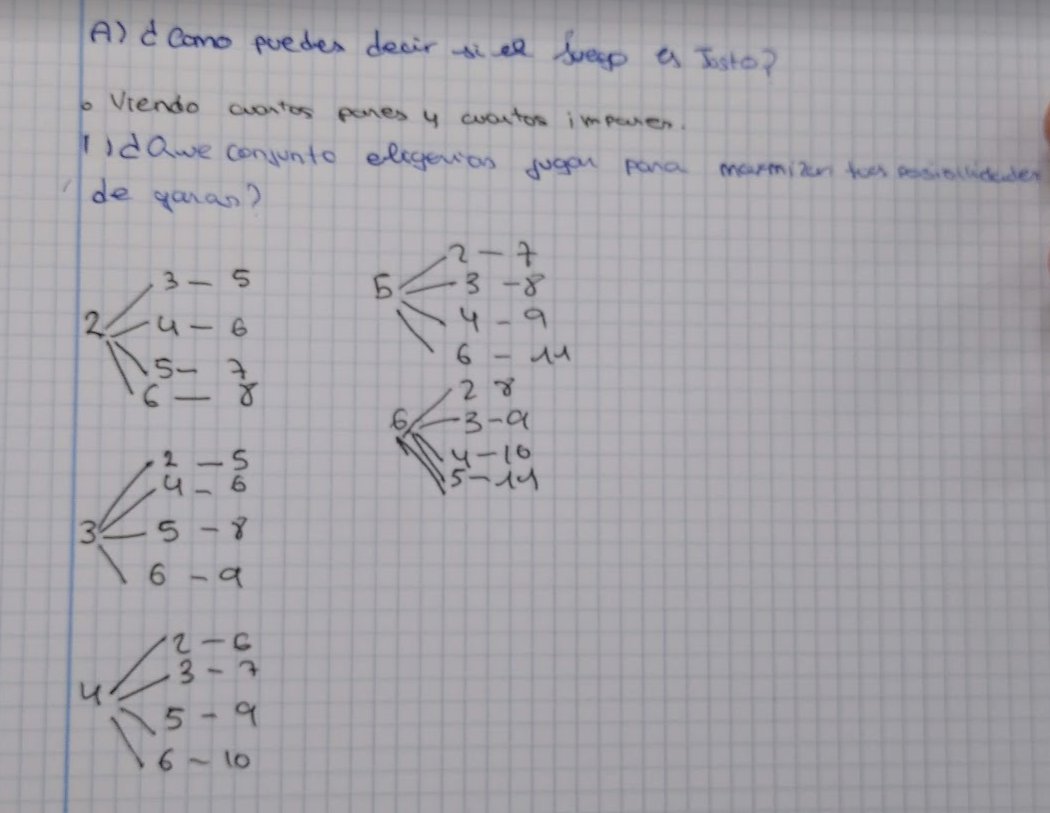 A) ¿Como puedes decir si el juego es Justo?
o Viendo cuantos pares y cuantos impares.
1) ¿Que conjunto elegerias jugar para maxmizar tus posibilidades
de ganar?
2
3 - 5
4 - 6
5 - 7
6 - 8
3
2 - 5
4 - 6
5 - 8
6 - 9
4
2 - 6
3 - 7
5 - 9
6 - 10
5
2 - 7
3 - 8
4 - 9
6 - 11
6
2 8
3 - 9
4 - 10
5 - 11